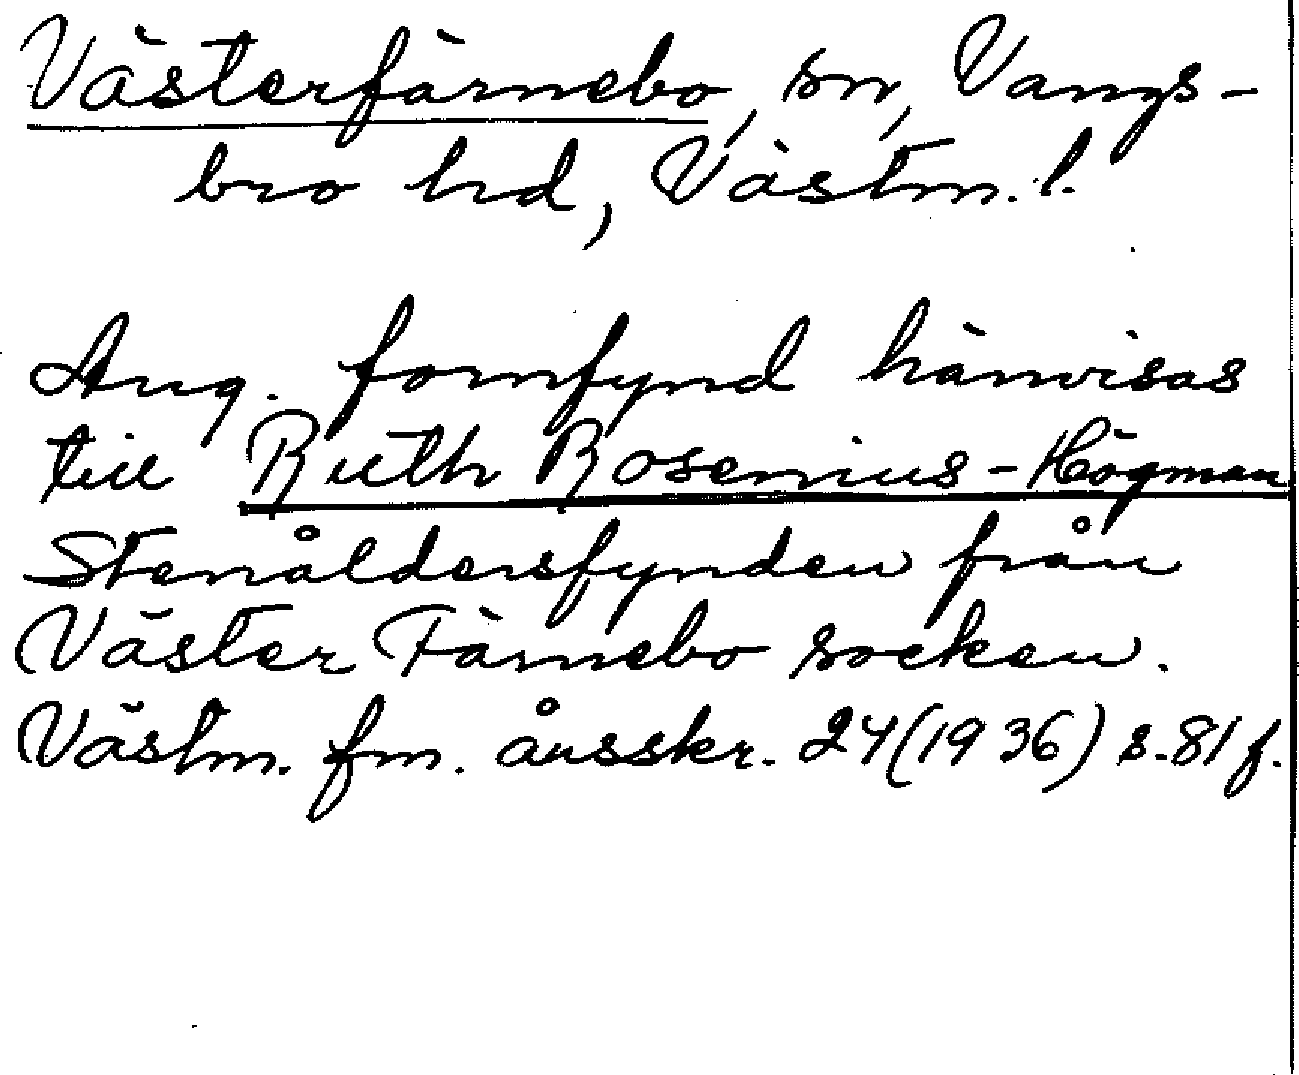 Västerfärnebo, sn, Vangs-
bro hd, Västm. l.
Ang. fornfynd hänvisas
till Ruth Rosenius-Högman
Stenåldersfynden från
Väster Färnebo socken.
Västm. fm. årsskr. 24 (1936) s. 81 f.